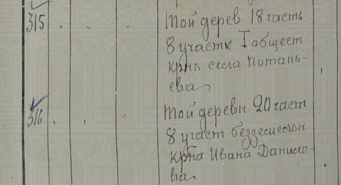 315
Той дерев 18 часть
8 участк I общест
крнъ села Потапь-
ева
316
Той деревн 20 част
8 участ безземельн
крна Ивана Данило-
ва